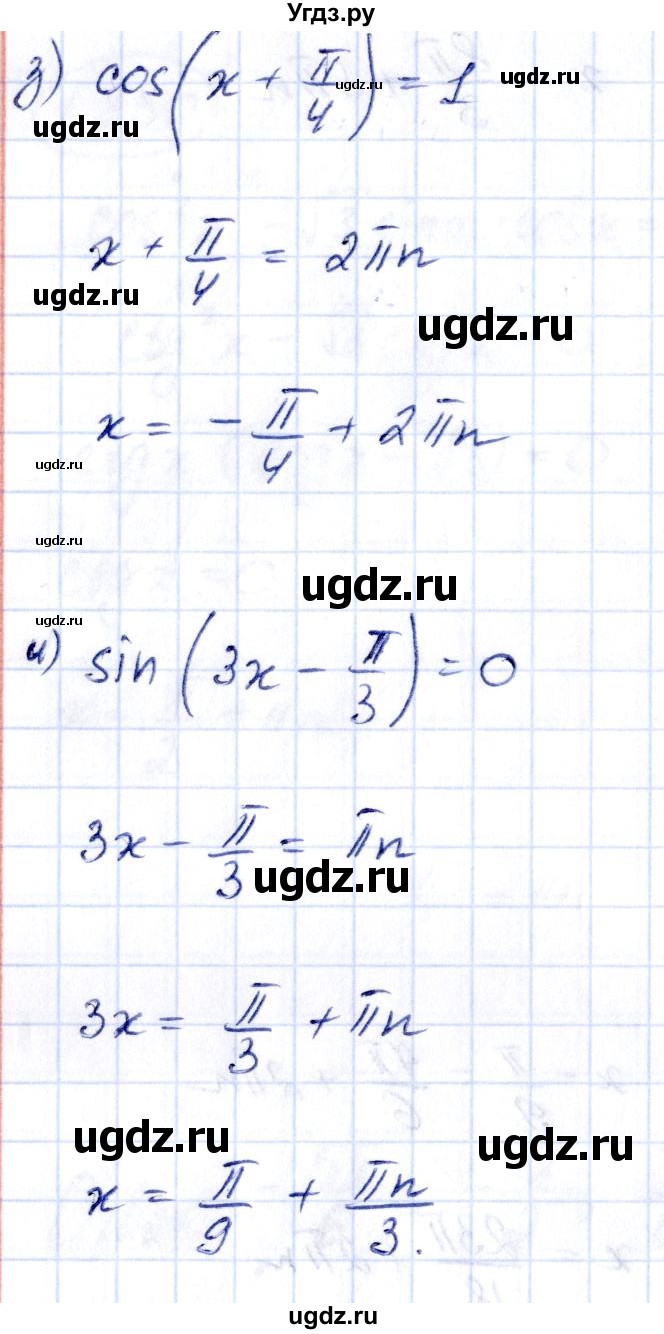 Угдз.ру
з) cos(x + π/4) = 1
ugdz.ru
ugdz.ru
ugdz.ru
x + π/4 = 2πn
ugdz.ru
ugdz.ru
x = -π/4 + 2πn
ugdz.ru
ugdz.ru
ugdz.ru
ugdz.ru
и) sin(3x - π/3) = 0
3x - π/3 = πn
ugdz.ru
3x = π/3 + πn
ugdz.ru
ugdz.ru
x = π/9 + πn/3.
ugdz.ru